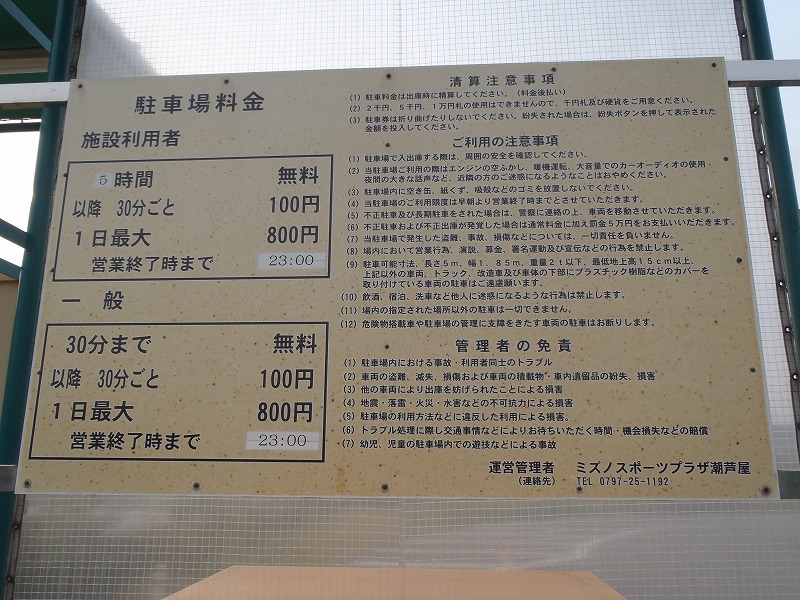 駐車場料金
施設利用者
5 時間 無料
以降 30分ごと 100円
1日最大 800円
営業終了時まで 23:00
一般
30分まで 無料
以降 30分ごと 100円
1日最大 800円
営業終了時まで 23:00
清算注意事項
(1) 駐車料金は出庫時に精算してください。(料金後払い)
(2) 2千円、5千円、1万円札の使用はできませんので、千円札及び硬貨をご用意ください。
(3) 駐車券は折り曲げたりしないでください。紛失された場合は、紛失ボタンを押して表示された
金額を投入してください。
ご利用の注意事項
(1) 駐車場で入出庫する際は、周囲の安全を確認してください。
(2) 当駐車場ご利用の際はエンジンの空ふかし、暖機運転、大音量でのカーオーディオの使用・
夜間の大きな話声など、近隣の方のご迷惑になるようなことはおやめください。
(3) 駐車場内に空き缶、紙くず、吸殻などのゴミを放置しないでください。
(4) 当駐車場のご利用限度は早朝より営業終了時までとさせていただきます。
(5) 不正駐車及び長期駐車をされた場合は、警察に連絡の上、車両を移動させていただきます。
(6) 不正駐車および不正出庫が発覚した場合は通常料金に加え罰金5万円をお支払いいただきます。
(7) 当駐車場で発生した盗難、事故、損傷などについては、一切責任を負いません。
(8) 場内において営業行為、演説、募金、署名運動及び宣伝などの行為を禁止します。
(9) 駐車可能寸法、長さ5m、幅1.85m、重量2t以下、最低地上高15cm以上、
上記以外の車両、トラック、改造車及び車体の下部にプラスチック樹脂などのカバーを
取り付けている車両の駐車はご遠慮願います。
(10) 飲酒、宿泊、洗車など他人に迷惑になるような行為は禁止します。
(11) 場内の指定された場所以外の駐車は一切できません。
(12) 危険物搭載車や駐車場の管理に支障をきたす車両の駐車はお断りします。
管理者の免責
(1) 駐車場内における事故・利用者同士のトラブル
(2) 車両の盗難、滅失、損傷および車両の積載物・車内遺留品の紛失、損害
(3) 他の車両により出庫を妨げられたことによる損害
(4) 地震・落雷・火災・水害などの不可抗力による損害
(5) 駐車場の利用方法などに違反した利用による損害。
(6) トラブル処理に際し交通事情などによりお待ちいただく時間・機会損失などの賠償
(7) 幼児、児童の駐車場内での遊技などによる事故
運営管理者 ミズノスポーツプラザ潮芦屋
(連絡先) TEL 0797-25-1192